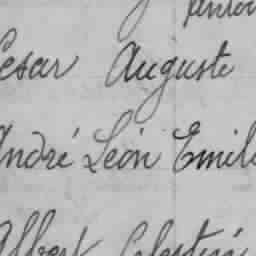 Cesar Auguste
André Léon Emile
Albert Célestin